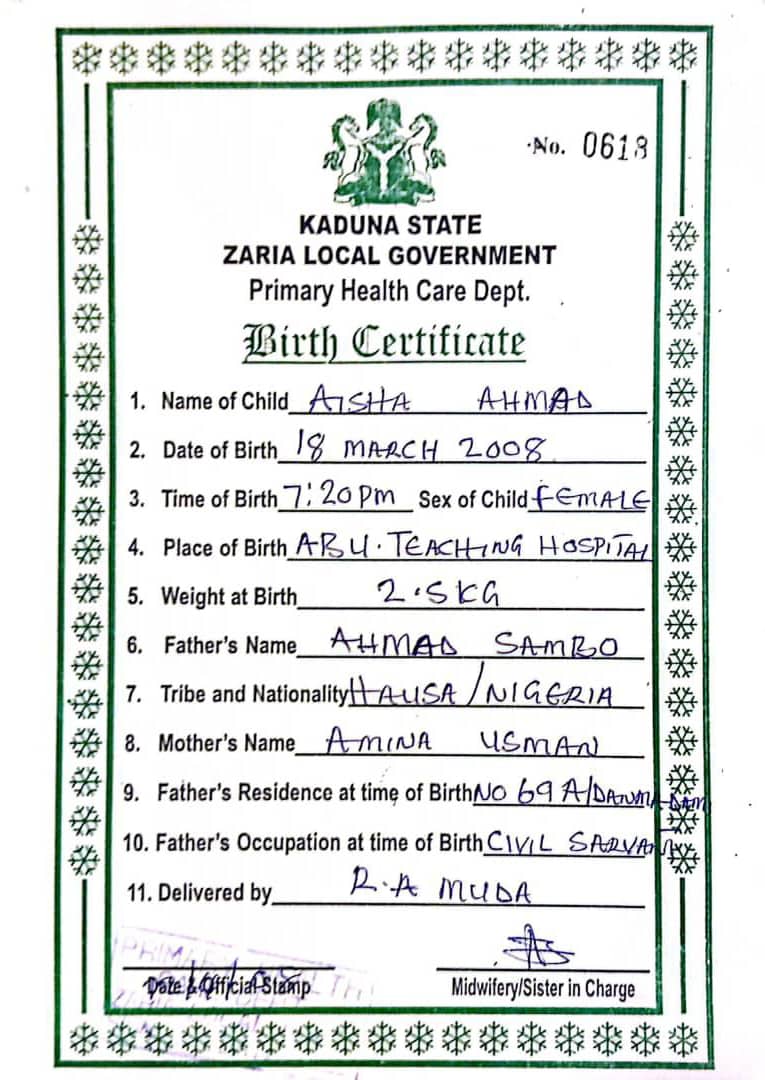 No. 0618
KADUNA STATE
ZARIA LOCAL GOVERNMENT
Primary Health Care Dept.
Birth Certificate
1. Name of Child AISHA AHMAD
2. Date of Birth 18 MARCH 2008
3. Time of Birth 7:20pm Sex of Child FEMALE
4. Place of Birth ABU. TEACHING HOSPITAL
5. Weight at Birth 2.5KG
6. Father's Name AHMAD SAMBO
7. Tribe and Nationality HAUSA/NIGERIA
8. Mother's Name AMINA USMAN
9. Father's Residence at time of Birth NO 69 A/
10. Father's Occupation at time of Birth CIVIL SARVANT
11. Delivered by R.A MUDA
Date & Official Stamp Midwifery/Sister in Charge